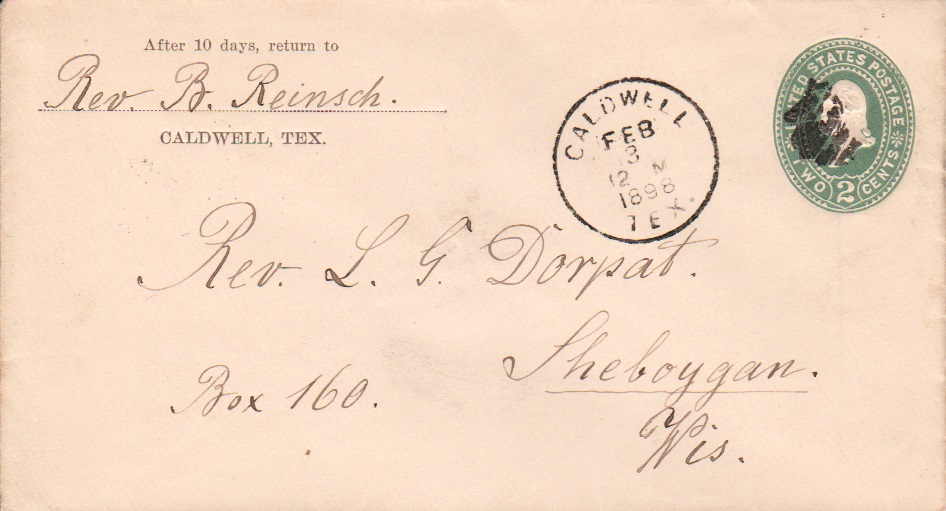 After 10 days, return to
Rev. B. Reinsch.
CALDWELL, TEX.
CALDWELL
FEB
3
12 M
1898
TEX.
STATES POSTAGE
TWO 2 CENTS
Rev. L. G. Dorpat.
Box 160.
Sheboygan.
Wis.